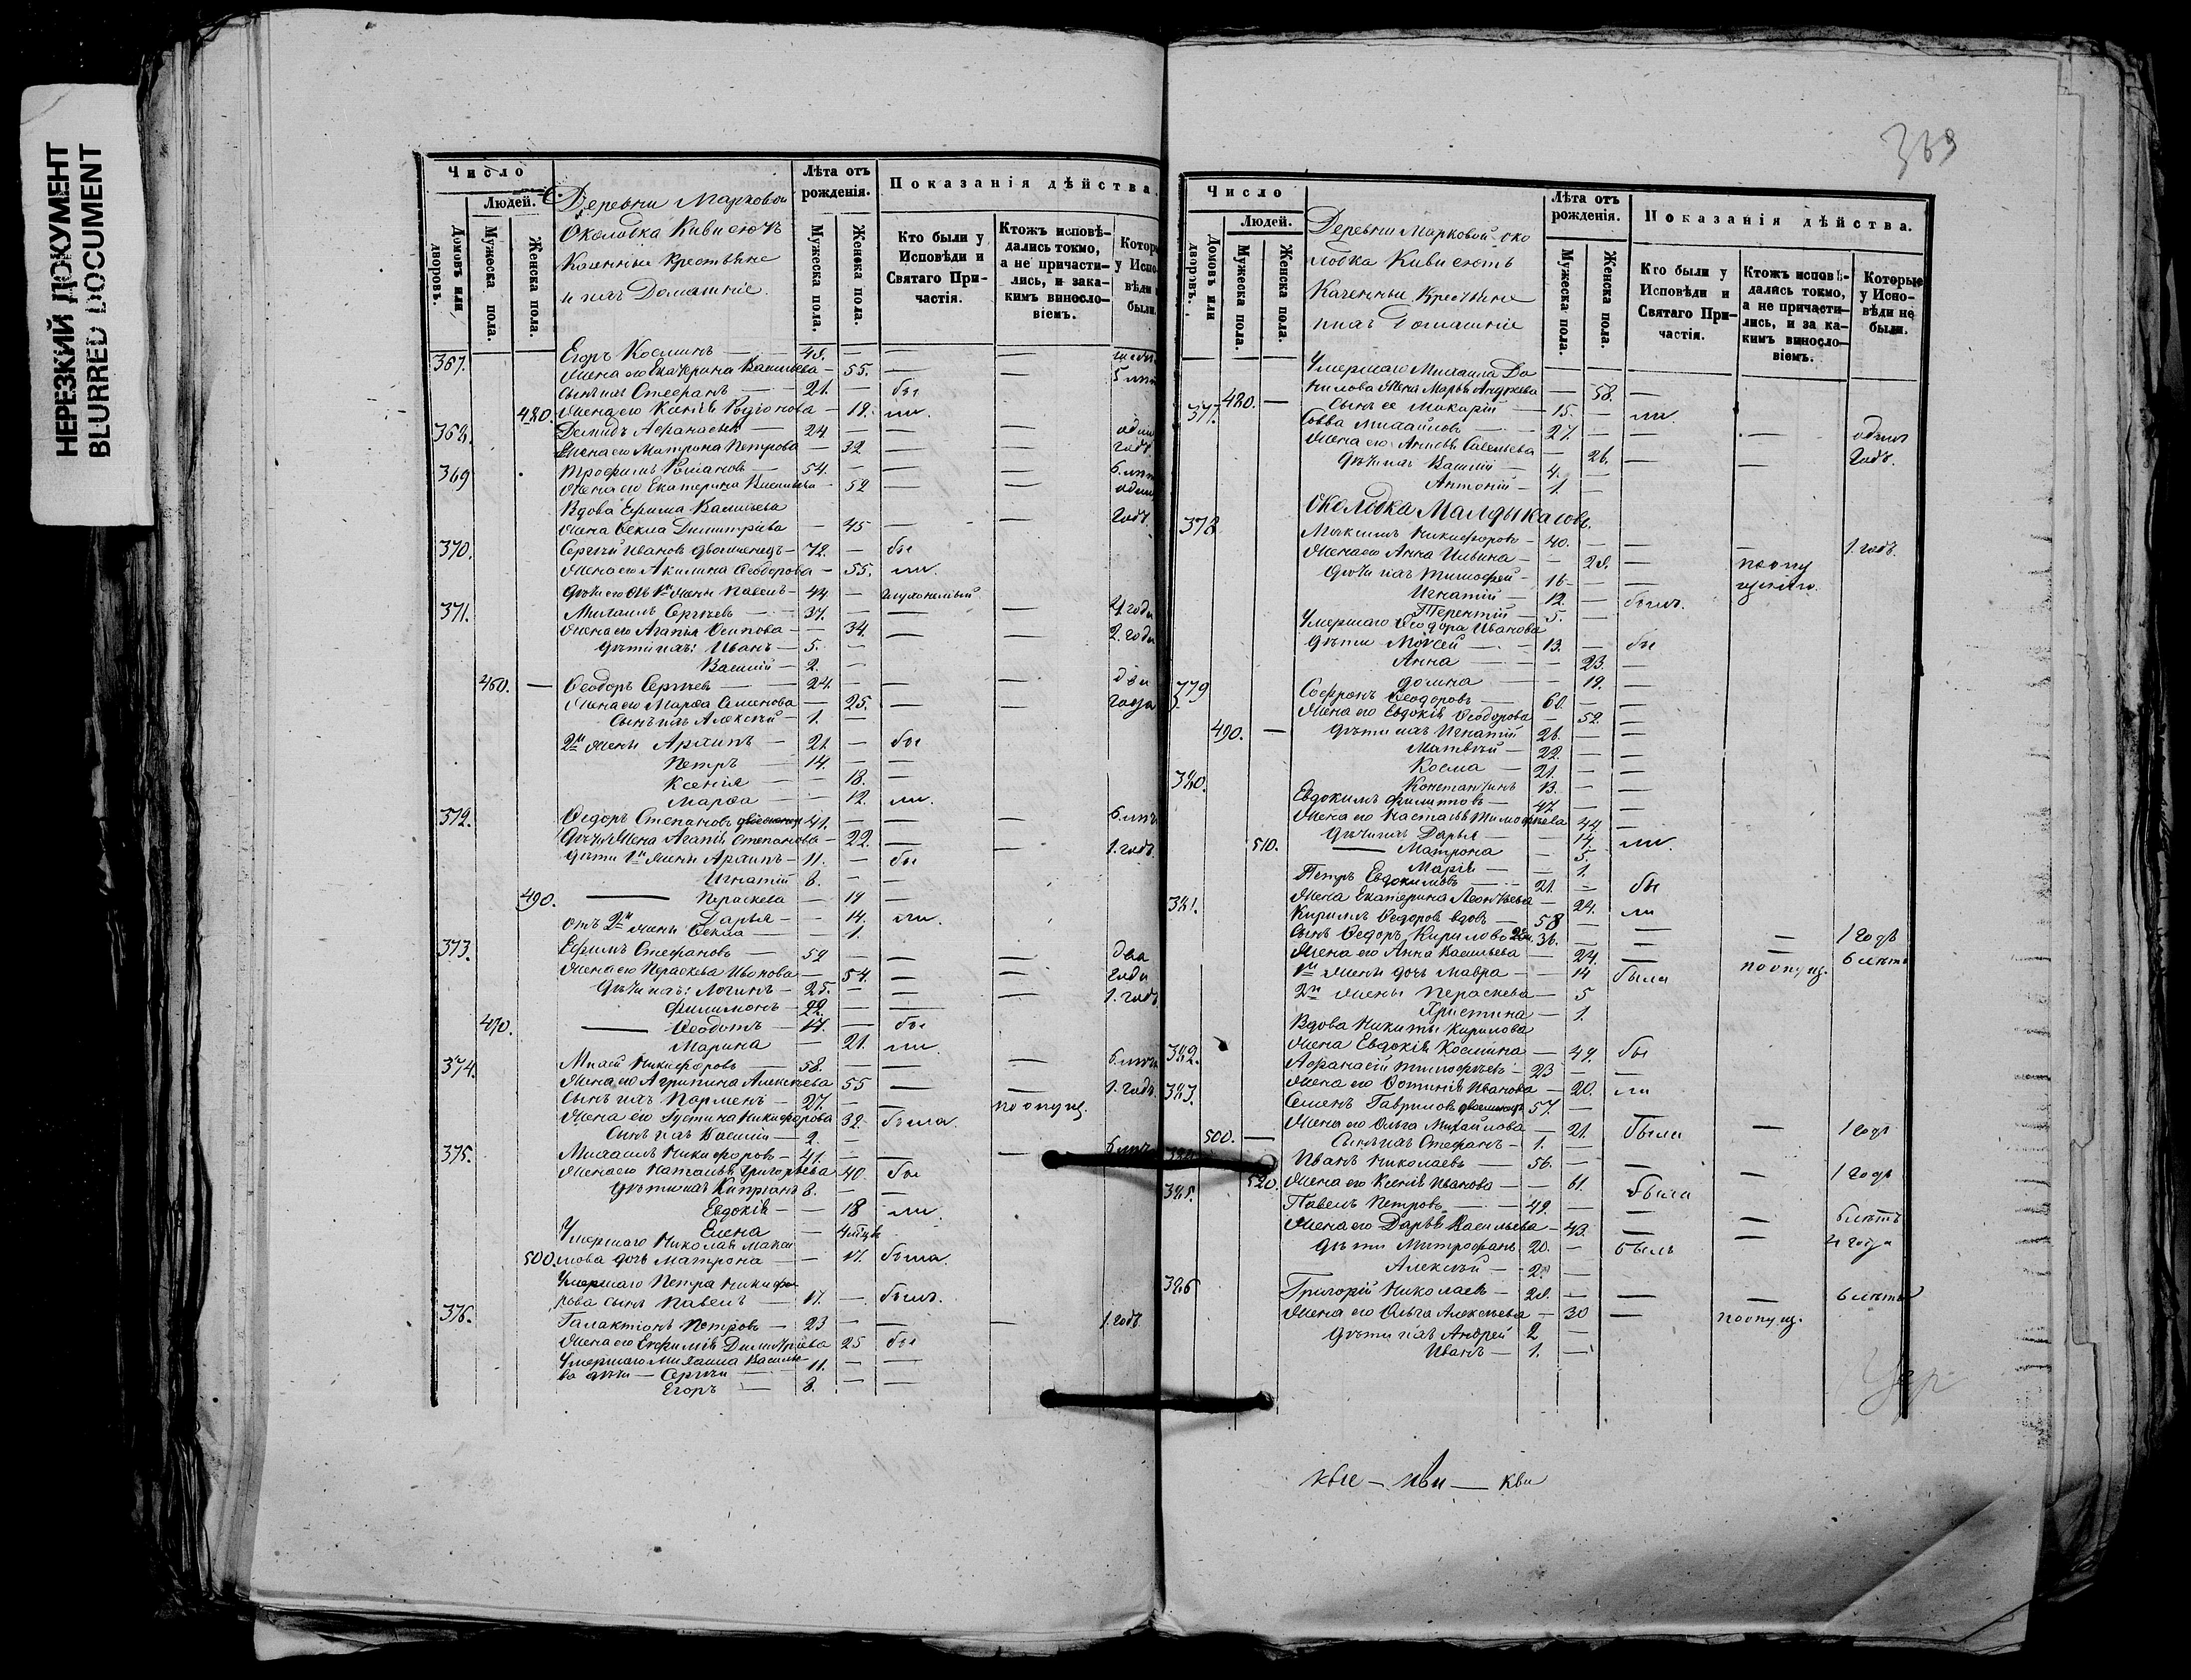 НЕРЕЗКИЙ ДОКУМЕНТ
BLURRED DOCUMENT
Число
Людей.
Домовъ или дворовъ.
Мужеска пола.
Женска пола.
Деревни Марковой
Околотка
Казенные Крестьяне
и ихъ Домашніе.
Лѣта отъ рожденія.
Мужеска пола.
Женска пола.
Показанія дѣйства.
Кто были у Исповѣди и Святаго Причастія.
Ктожъ исповѣдались токмо, а не причастились, и закакимъ винословіемъ.
Котор
у Испо
вѣди
были
367. Егоръ Косминъ — 48. — — —
Жена его Екатерина Васильева — 55. — — 5 лѣт
Сынъ ихъ Стефанъ — 21. — бы
480. Жена его Ксенія Родіонова — 19. ли.
368. Демидъ Афанасьевъ — 24. — — — одинъ
Жена его Матрона Петрова — 32 — — годъ.
369 Трофимъ Романовъ — 54. — — — 6. лѣт
Жена его Екатерина Васильева — 52 — — одинъ
Вдова Ефима Васильева годъ.
жена Ѳекла Димитріева — 45 — —
370. Сергѣй Ивановъ двоеженецъ — 72. — бы
Жена его Акилина Ѳеодорова — 55. ли.
Дѣти его отъ 1й жены Павелъ — 44 — глухонемый
371. Михаилъ Сергѣевъ — 37. — — — 4 года
Жена его Агапія Осипова — 34. — — 2. года
Дѣти ихъ: Иванъ — 5. —
Василій — 2. —
460. — Ѳеодоръ Сергѣевъ — 24. — — — два
Жена его Марѳа Семенова — 25. — — года
Сынъ ихъ Алексѣй — 1. —
2й жены Архипъ — 21. — бы
Петръ — 14. — —
Ксенія — 18. —
Марѳа — 12. ли.
372. Ѳедоръ Степановъ двоеженец 41. — — — 6. лѣтъ
Жена Агапія Степанова — 22. — — 1. годъ.
Дѣти 1й жены Архипъ — 11. — бы
Игнатій 8. — —
490. — Параскева — 19 —
Дарья — 14. ли.
отъ 2й жены Ѳекла — 1.
373. Ефимъ Стефановъ — 59 — — — два
Жена его Параскева Иванова — 54. — — года
Дѣти ихъ: Логинъ — 25. — — — 1. годъ
Филимонъ — 22. — —
470. — Ѳеодотъ — 17. — бы
Марина — 21. ли.
374. Никифоровъ — 58. — — — 6. лѣтъ
Жена его Агрипина Алексѣева 55 — — 1. годъ.
Сынъ ихъ Парменъ — 27. — — по опущ.
Жена его Іустина Никифорова 32. была.
Сынъ ихъ Василій — 2. —
375. Михаилъ Никифоровъ — 41. — — — 6 лѣтъ
Жена его Наталья Григорьева 40. бы
Дѣти ихъ Кипріанъ 8. — —
Евдокія — 18 ли.
Елена — 4 мѣсяц
Умершаго Николая Макси
500. мова дочь Матрона — 17. была.
Умершаго Петра Никифо
рова сынъ Павелъ — 17. — былъ.
376. Галактіонъ Петровъ — 23 — — — 1. годъ
Жена его Евфимія Димитріева 25 бы
Умершаго Михаила Василье
ва дѣти — Сергѣй — 11. — —
Егоръ — 8. — —
Число
Людей.
Домовъ или дворовъ.
Мужеска пола.
Женска пола.
Деревни Марковой око
лодка
Казенные Крестьяне
и ихъ Домашніе
Лѣта отъ рожденія.
Мужеска пола.
Женска пола.
Показанія дѣйства.
Кто были у Исповѣди и Святаго Причастія.
Ктожъ исповѣдались токмо, а не причастились, и за какимъ винословіемъ.
Которые у Исповѣди не были.
Умершаго Михаила Да
нилова жена Марья Андреева — 58. —
480. — Сынъ ее Макарій — 15. — ли.
377. Савва Михайловъ — 27. — — — одинъ
Жена его Савельева — 26. — — годъ.
Дѣти ихъ Василій — 4. —
Антоній — 1. —
Околодка Малдыкасовъ.
378 Максимъ Никифоровъ — 40. — — — 1. годъ.
Жена его Анна Ильина — 28. — по опу
Дѣти ихъ Тимофей — 16 — — щенію.
Игнатій — 12. — былъ.
Терентій — 5. —
Умершаго Ѳеодора Иванова
дѣти Моисей — 13. — бы
Анна — 23. —
— 19. —
379 Софронъ Ѳеодоровъ — 60. — —
Жена его Евдокія Ѳеодорова — 52. —
490. — Дѣти ихъ Игнатій 26. — —
Матвѣй — 22. — —
Косма — 21. — —
Константинъ 13. — —
380. Евдокимъ Филипповъ — 47. — —
Жена его Настасья Тимофеева 44. —
Дѣти ихъ Дарья — 14. ли.
510. — Матрона — 5.
Марія — 1.
Петръ Евдокимовъ — 21. — бы
Жена Екатерина Леонтьева — 24. ли
381. Кирилъ Ѳедоровъ вдовъ — 58 —
Сынъ Ѳедоръ Кириловъ 36. — — — 1 годъ
Жена его Анна Васильева — 24. — по опущ. 6 лѣтъ
1й жены дочь Мавра — 14 была
2й жены Параскева — 5
Христина — 1.
Вдова Никиты Кирилова
жена Евдокія Космина — 49. бы
382. Афанасій Тимофѣевъ — 23 — —
Жена его Фотинія Иванова — 20. ли
383. Семенъ Гавриловъ двоеженецъ 57. —
Жена его Ольга Михайлова — 21. была — 1 годъ
500. — Сынъ ихъ Стефанъ — 1. —
Иванъ Николаевъ — 56. — — — 1 годъ
520. Жена его Ксенія Иванова — 61. была
385. Павелъ Петровъ — 49. — — — 6 лѣтъ
Жена его Дарья Васильева — 43. — — 4 года
Дѣти Митрофанъ 20. — былъ
Алексѣй — 2. —
386 Григорій Николаевъ — 28. — — — 6 лѣтъ
Жена его Ольга Алексѣева — 30 — по опущ.
Дѣти ихъ Андрей 2 —
Иванъ — 1. —